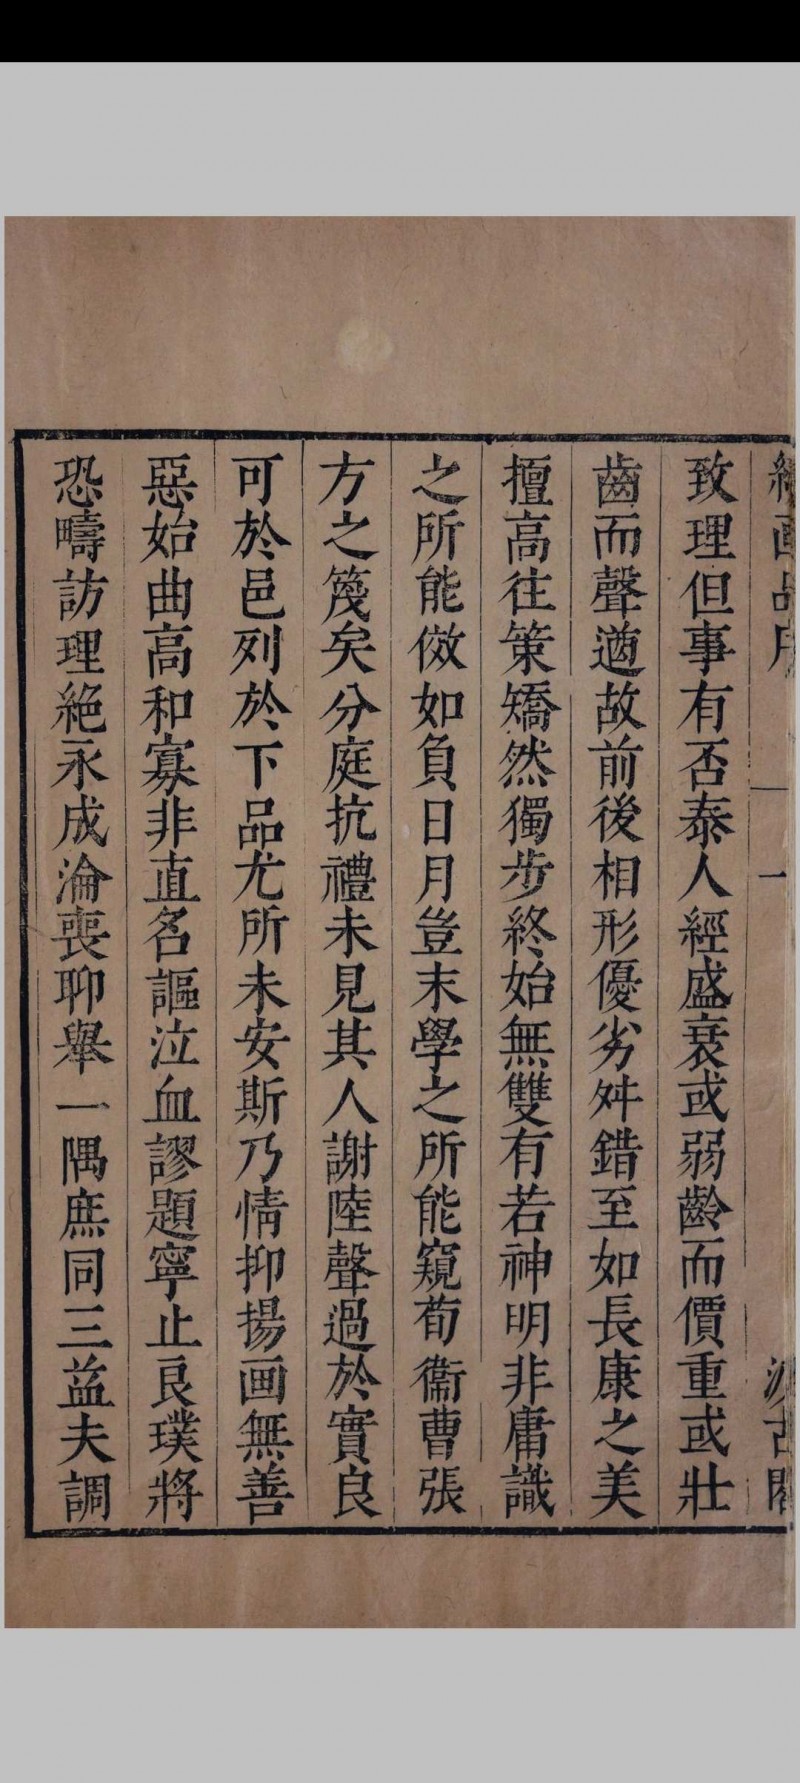 致理但事有否泰人經盛衰或弱齡而價重或壯
齒而聲遒故前後相形優劣舛錯至如長康之美
擅高往策矯然獨步終始無雙有若神明非庸識
之所能傚如負日月豈末學之所能窺荀衞曹張
方之篾矣分庭抗禮未見其人謝陸聲過於實良
可於邑列於下品尤所未安斯乃情抑揚画無善
惡始曲高和寡非直名謳泣血謬題寧止良璞將
恐疇訪理絶永成淪喪聊舉一隅庶同三益夫調